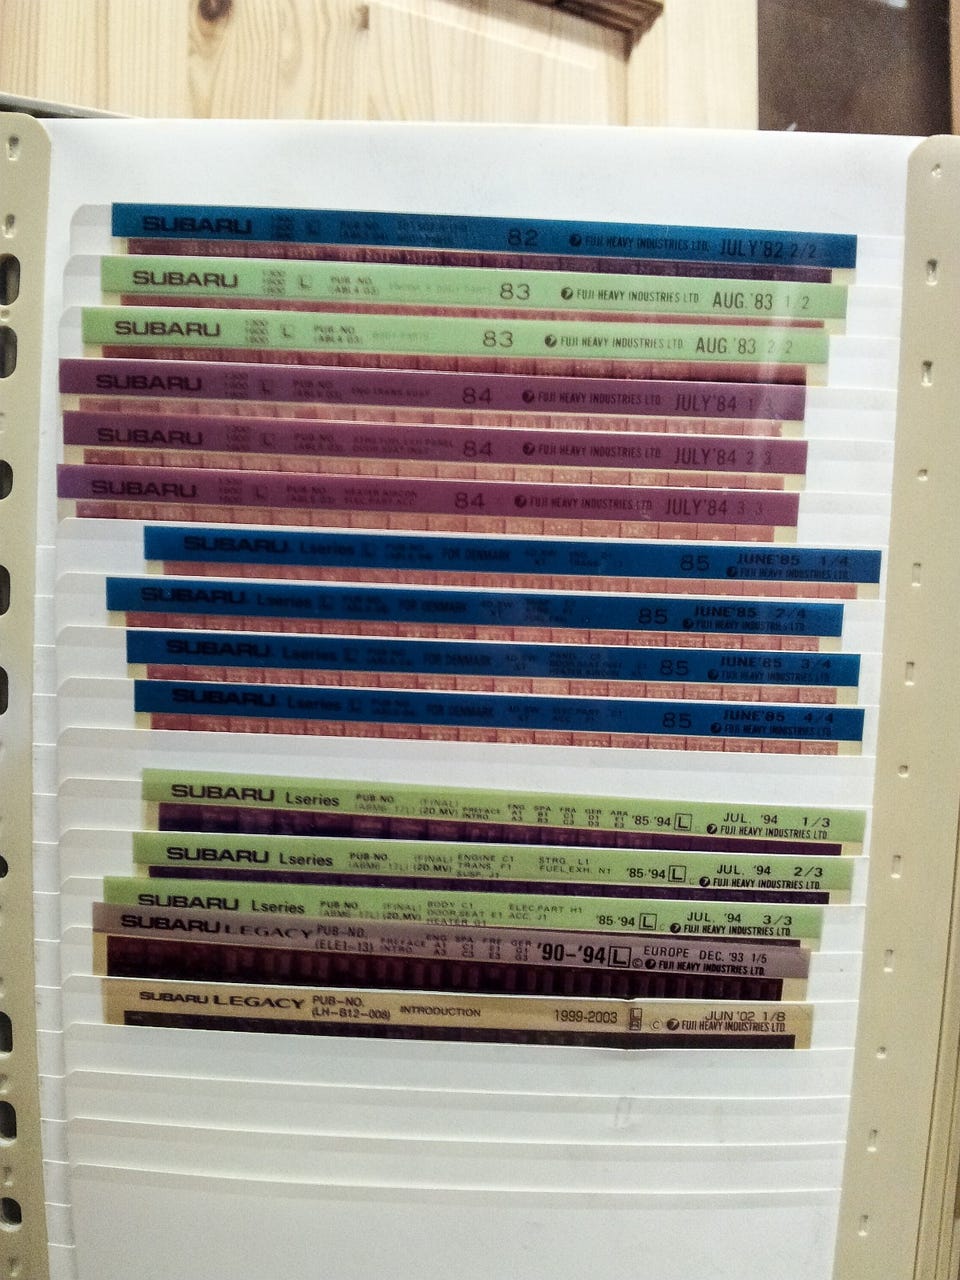 SUBARU 1300 1600 1800 L PUB-NO. 82 FUJI HEAVY INDUSTRIES LTD. JULY'82 2/2
SUBARU 1300 1600 1800 L PUB-NO. (ABL4-03) 83 FUJI HEAVY INDUSTRIES LTD. AUG.'83 1/2
SUBARU 1300 1600 1800 L PUB-NO. (ABL4-03) BODY PARTS 83 FUJI HEAVY INDUSTRIES LTD. AUG.'83 2/2
SUBARU 1300 1600 1800 L PUB-NO. 84 FUJI HEAVY INDUSTRIES LTD. JULY'84 1/3
SUBARU 1300 1600 1800 L PUB-NO. 84 FUJI HEAVY INDUSTRIES LTD. JULY'84 2/3
SUBARU 1300 1600 1800 L PUB-NO. HEATER AIRCON ELEC.PART ACC 84 FUJI HEAVY INDUSTRIES LTD. JULY'84 3/3
SUBARU Lseries L PUB-NO. FOR DENMARK 4D.SW XT 85 JUNE'85 1/4
FUJI HEAVY INDUSTRIES LTD.
SUBARU Lseries FOR DENMARK 4D.SW XT 85 JUNE'85 2/4
FUJI HEAVY INDUSTRIES LTD.
SUBARU Lseries L FOR DENMARK 4D.SW XT 85 JUNE'85 3/4
FUJI HEAVY INDUSTRIES LTD.
SUBARU Lseries L FOR DENMARK 4D.SW XT ELEC.PART ACC 85 JUNE'85 4/4
FUJI HEAVY INDUSTRIES LTD.
SUBARU Lseries PUB-NO. (FINAL) ENG SPA FRA GER ARA '85-'94 L JUL. '94 1/3
(ABM6-17L) (20.MV) PREFACE INTRO A1 B1 C1 D1 E1 A3 B3 C3 D3 E3 FUJI HEAVY INDUSTRIES LTD.
SUBARU Lseries PUB-NO. (FINAL) ENGINE C1 STRG. L1 '85-'94 L JUL. '94 2/3
(ABM6-17L) (20.MV) TRANS. F1 FUEL,EXH. N1 SUSP. J1 FUJI HEAVY INDUSTRIES LTD.
SUBARU Lseries PUB-NO. (FINAL) BODY C1 ELEC.PART H1 '85-'94 L JUL. '94 3/3
(ABM6-17L) (20.MV) DOOR,SEAT E1 ACC. J1 HEATER G1 FUJI HEAVY INDUSTRIES LTD.
SUBARU LEGACY PUB-NO. ENG SPA FRE GER '90-'94 L EUROPE DEC. '93 1/5
(ELE1-13) PREFACE INTRO A1 C1 E1 G1 A3 C3 E3 G3 © FUJI HEAVY INDUSTRIES LTD.
SUBARU LEGACY PUB-NO. INTRODUCTION 1999-2003 L R JUN '02 1/8
(LH-B12-008) © FUJI HEAVY INDUSTRIES LTD.